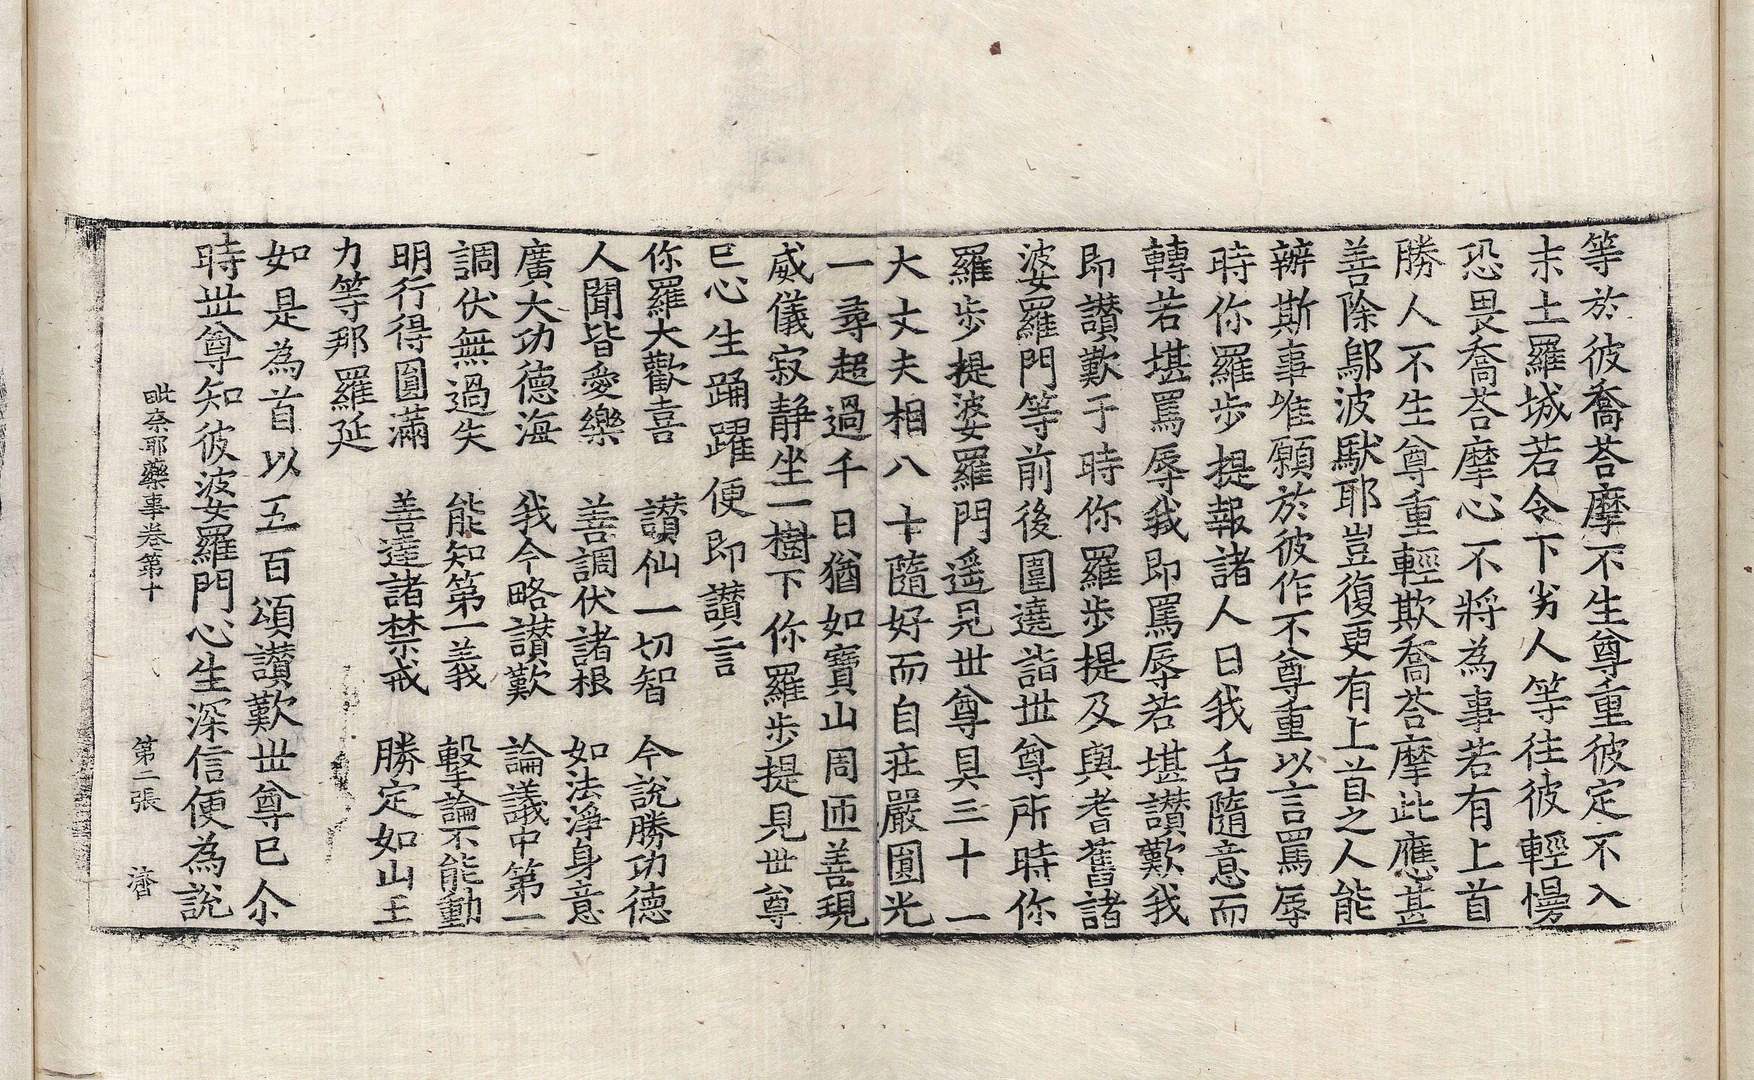 等於彼喬荅摩不生尊重彼定不入
末土羅城若令下劣人等往彼輕慢
恐畏喬荅摩心不將為事若有上首
勝人不生尊重輕欺喬荅摩此應甚
善除鄔波馱耶豈復更有上首之人能
辦斯事唯願於彼作不尊重以言罵辱
時你羅步提報諸人曰我舌隨意而
轉若堪罵辱我即罵辱若堪讃歎我
即讃歎于時你羅步提及與耆舊諸
婆羅門等前後圍遶詣世尊所時你
羅步提婆羅門遥見世尊具三十一
大丈夫相八十隨好而自莊嚴圓光
一尋超過千日猶如寶山周匝善現
威儀寂靜坐一樹下你羅步提見世尊
已心生踊躍便即讃言
你羅大歡喜　讃仙一切智　今說勝功德
人聞皆愛樂　善調伏諸根　如法淨身意
廣大功德海　我今略讃歎　論議中第一
調伏無過失　能知第一義　擊論不能動
明行得圓滿　善達諸禁戒　勝定如山王
力等那羅延
如是為首以五百頌讃歎世尊已尒
時世尊知彼婆羅門心生深信便為說
毗奈耶藥事卷第十　第二張　濟